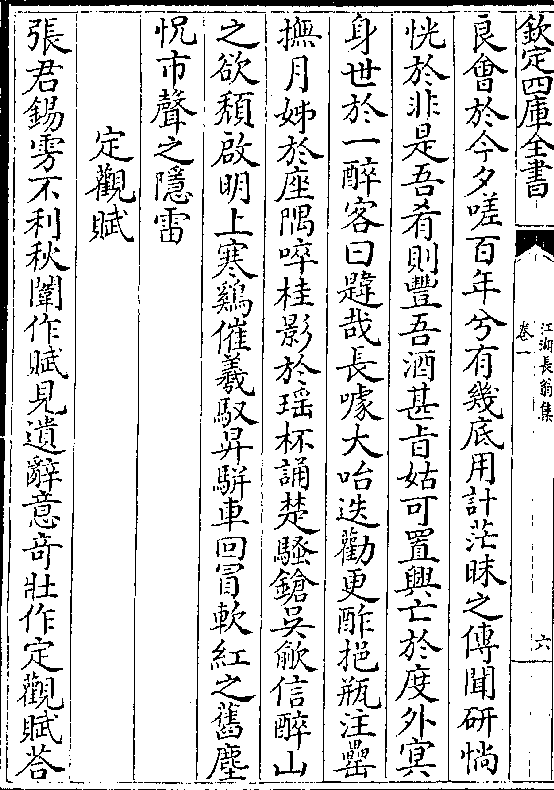 欽定四庫全書
江湖長翁集
卷一
六
良會於今夕嗟百年兮有幾底用計茫昧之傳聞研惝
恍於非是吾肴則豐吾酒甚旨姑可置興亡於度外寘
身世於一醉客曰韙哉長噱大咍迭勸更酢挹瓶注罍
撫月姊於座隅啐桂影於瑶杯誦楚騷鎗吳歈信醉山
之欲頽啟明上寒鷄催羲馭昇駢車回冒軟紅之舊塵
怳市聲之隱雷
定觀賦
張君錫雱不利秋闈作賦見遺辭意竒壯作定觀賦荅